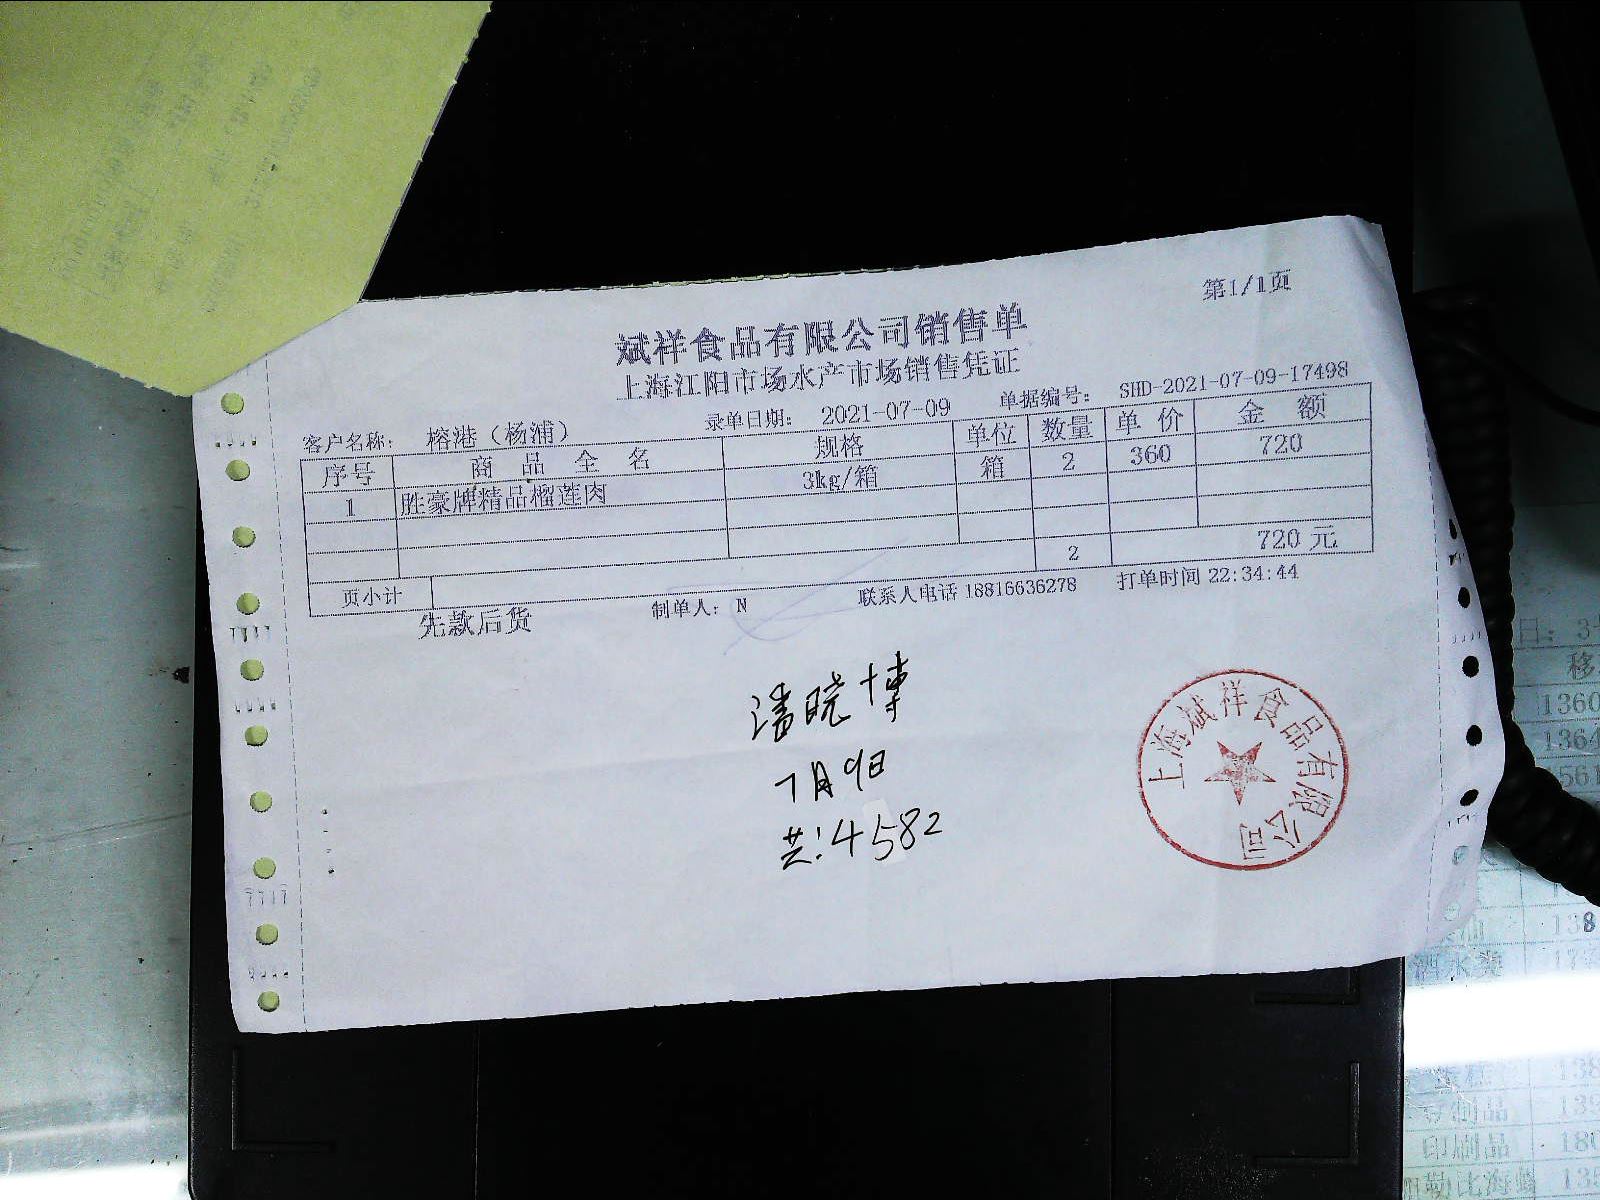 第1/1页
斌祥食品有限公司销售单
上海江阳市场水产市场销售凭证
客户名称: 榕港（杨浦） 录单日期: 2021-07-09 单据编号: SHD-2021-07-09-17498
序号 商品全名 规格 单位 数量 单价 金额
1 胜豪牌精品榴莲肉 3kg/箱 箱 2 360 720
页小计 2 720元
先款后货 制单人: N 联系人电话 18816636278 打单时间 22:34:44
潘晓博
7月9日
芸:4582
上海斌祥食品有限公司
移
1360
1364
561
138
酒水类
138
139
印刷品 180
135